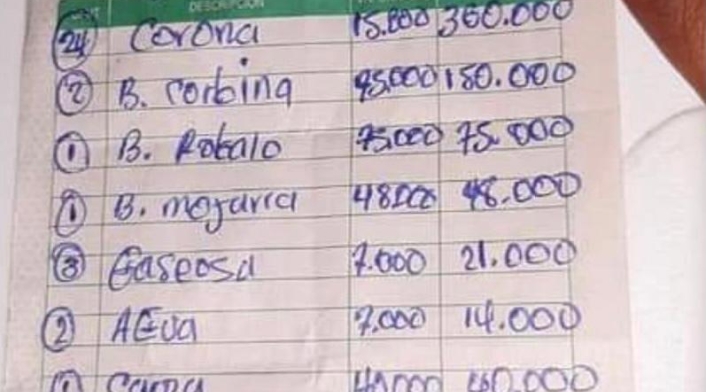 DESCRIPCION
24 Corona 15.000 360.000
2 B. Corbina 75.000 150.000
1 B. Robalo 75.000 75.000
1 B. mojarra 48.000 48.000
3 Gaseosa 7.000 21.000
2 AGua 7.000 14.000